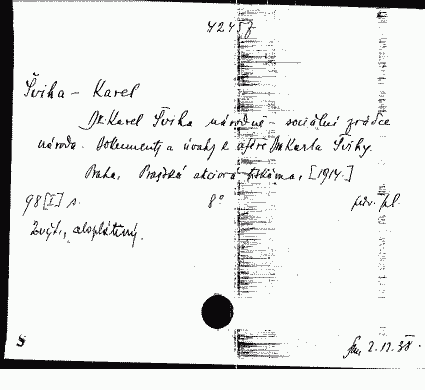 42457
Šviha – Karel
Dr. Karel Šviha národně – sociální zrádce
národa. Dokumenty a úvahy k aféře Dra Karla Švihy.
Praha, Pražská akciová tiskárna, [1914.]
98 [I] s. 8° pův. pl.
Zvl.
2.12.38
S